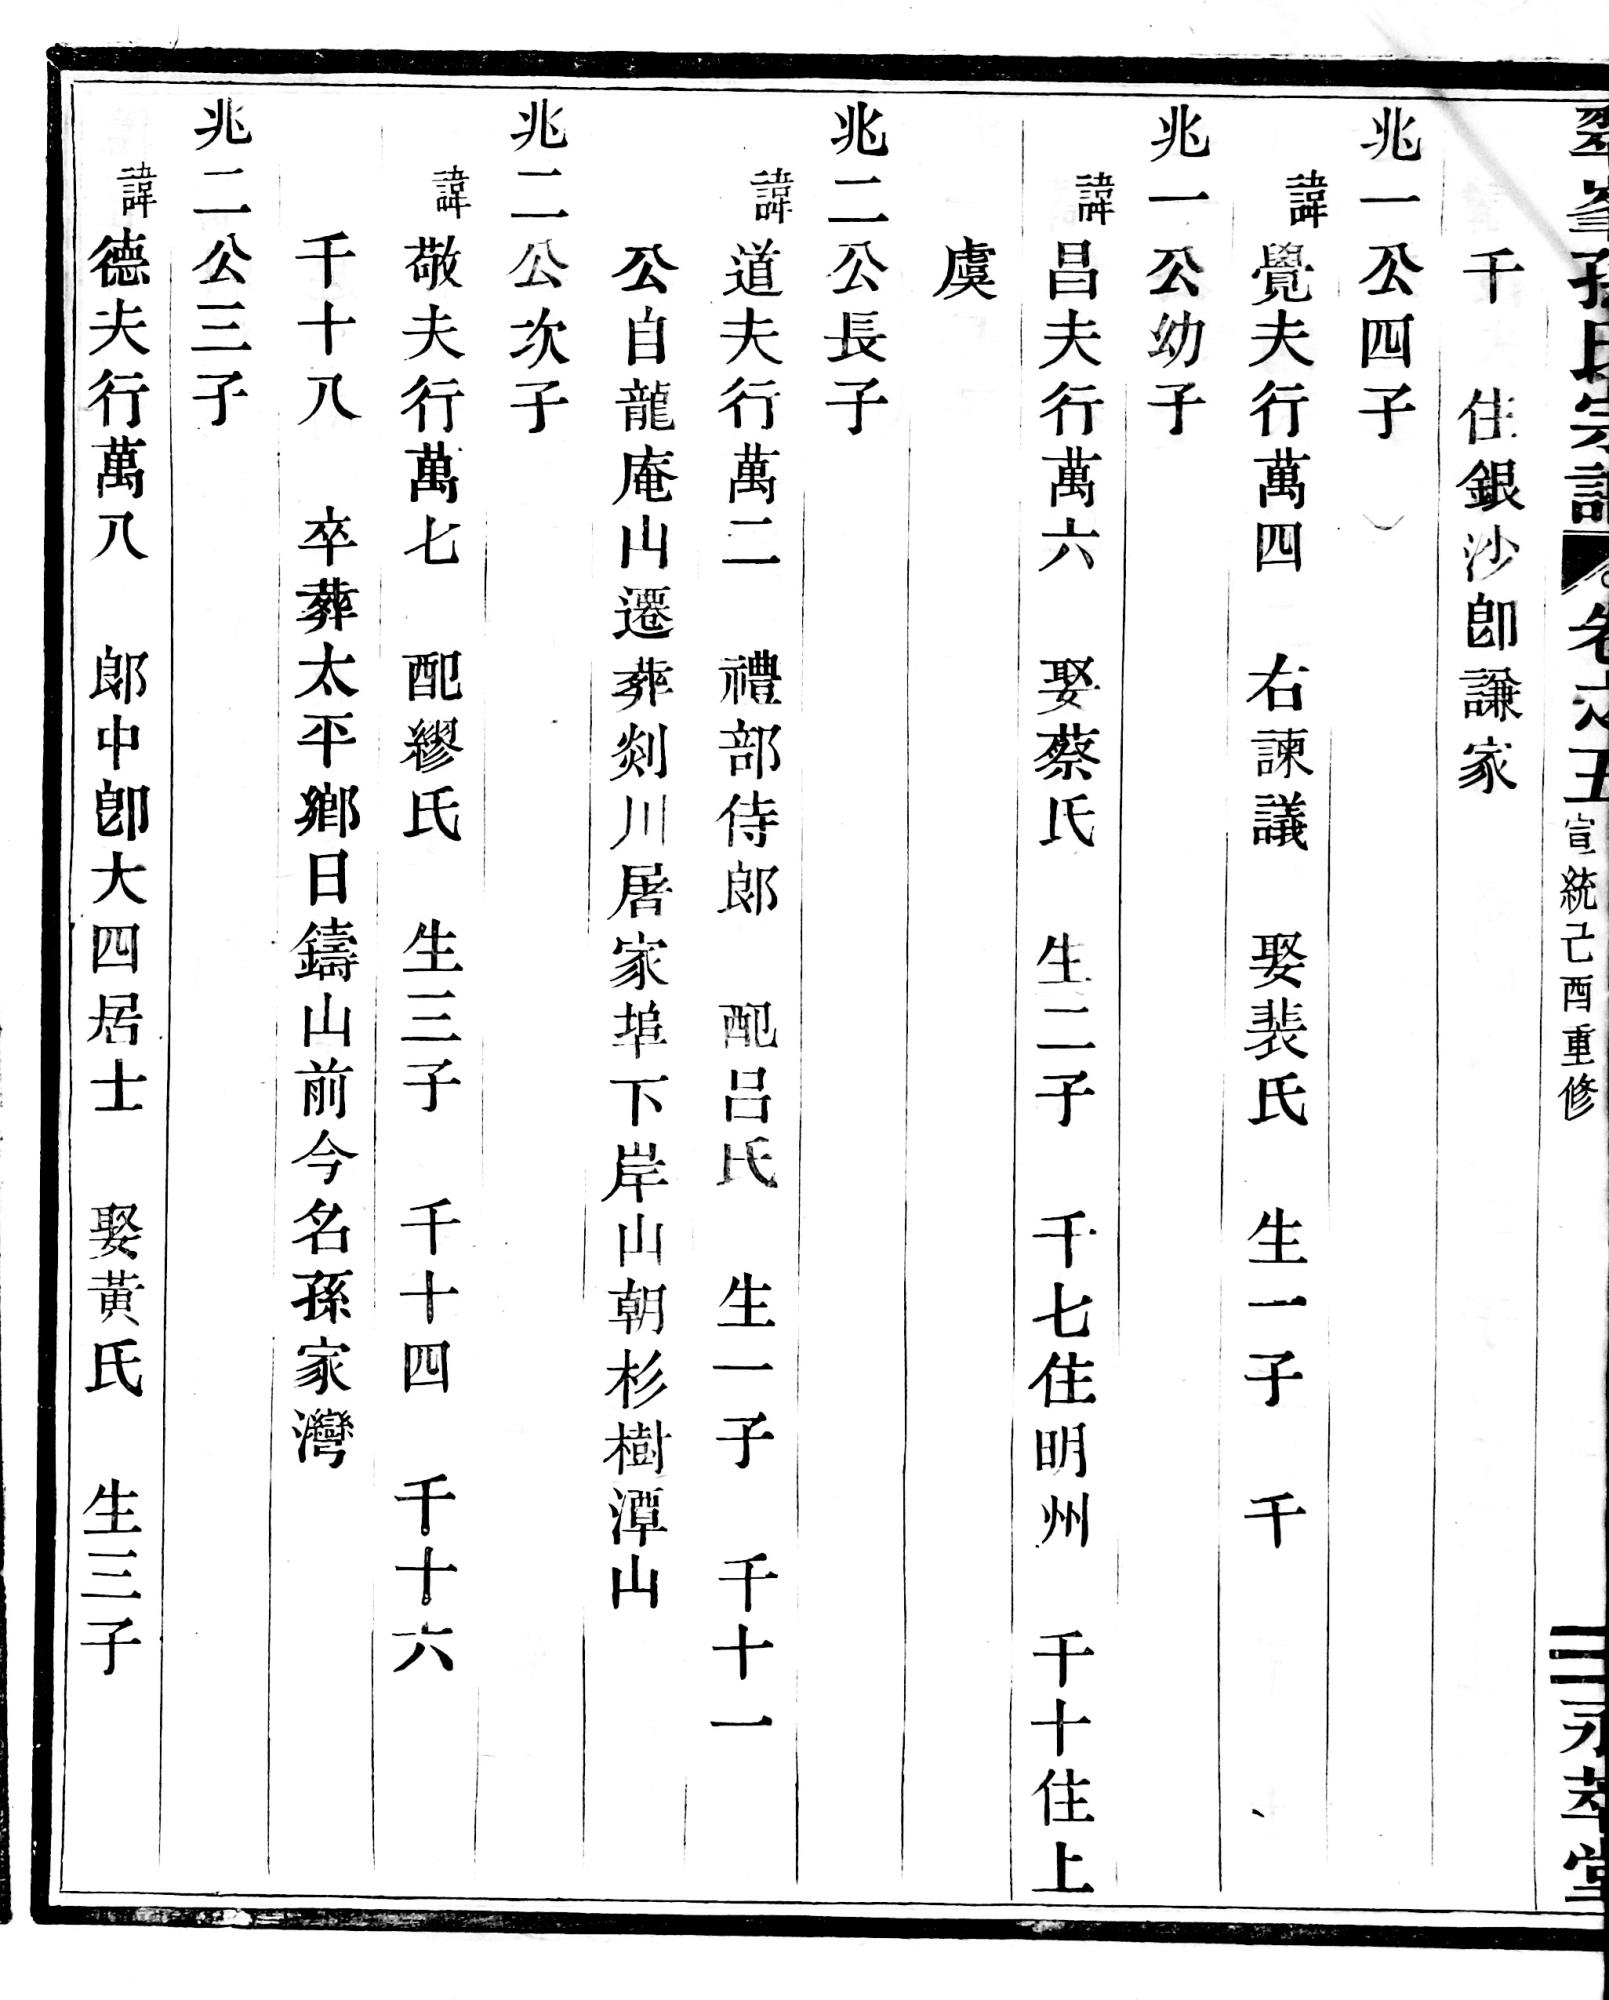 翠峯孫氏宗譜 卷之五 宣統己酉重修 三 永萃堂
千 住銀沙卽謙家
兆一公四子
諱覺夫行萬四 右諫議 娶裴氏 生一子 千
兆一公幼子
諱昌夫行萬六 娶蔡氏 生二子 千七住明州 千十住上
虞
兆二公長子
諱道夫行萬二 禮部侍郎 配呂氏 生一子 千十一
公自龍庵山遷葬剡川屠家埠下岸山朝杉樹潭山
兆二公次子
諱敬夫行萬七 配繆氏 生三子 千十四 千十六
千十八 卒葬太平鄉日鑄山前今名孫家灣
兆二公三子
諱德夫行萬八 郎中卽大四居士 娶黃氏 生三子